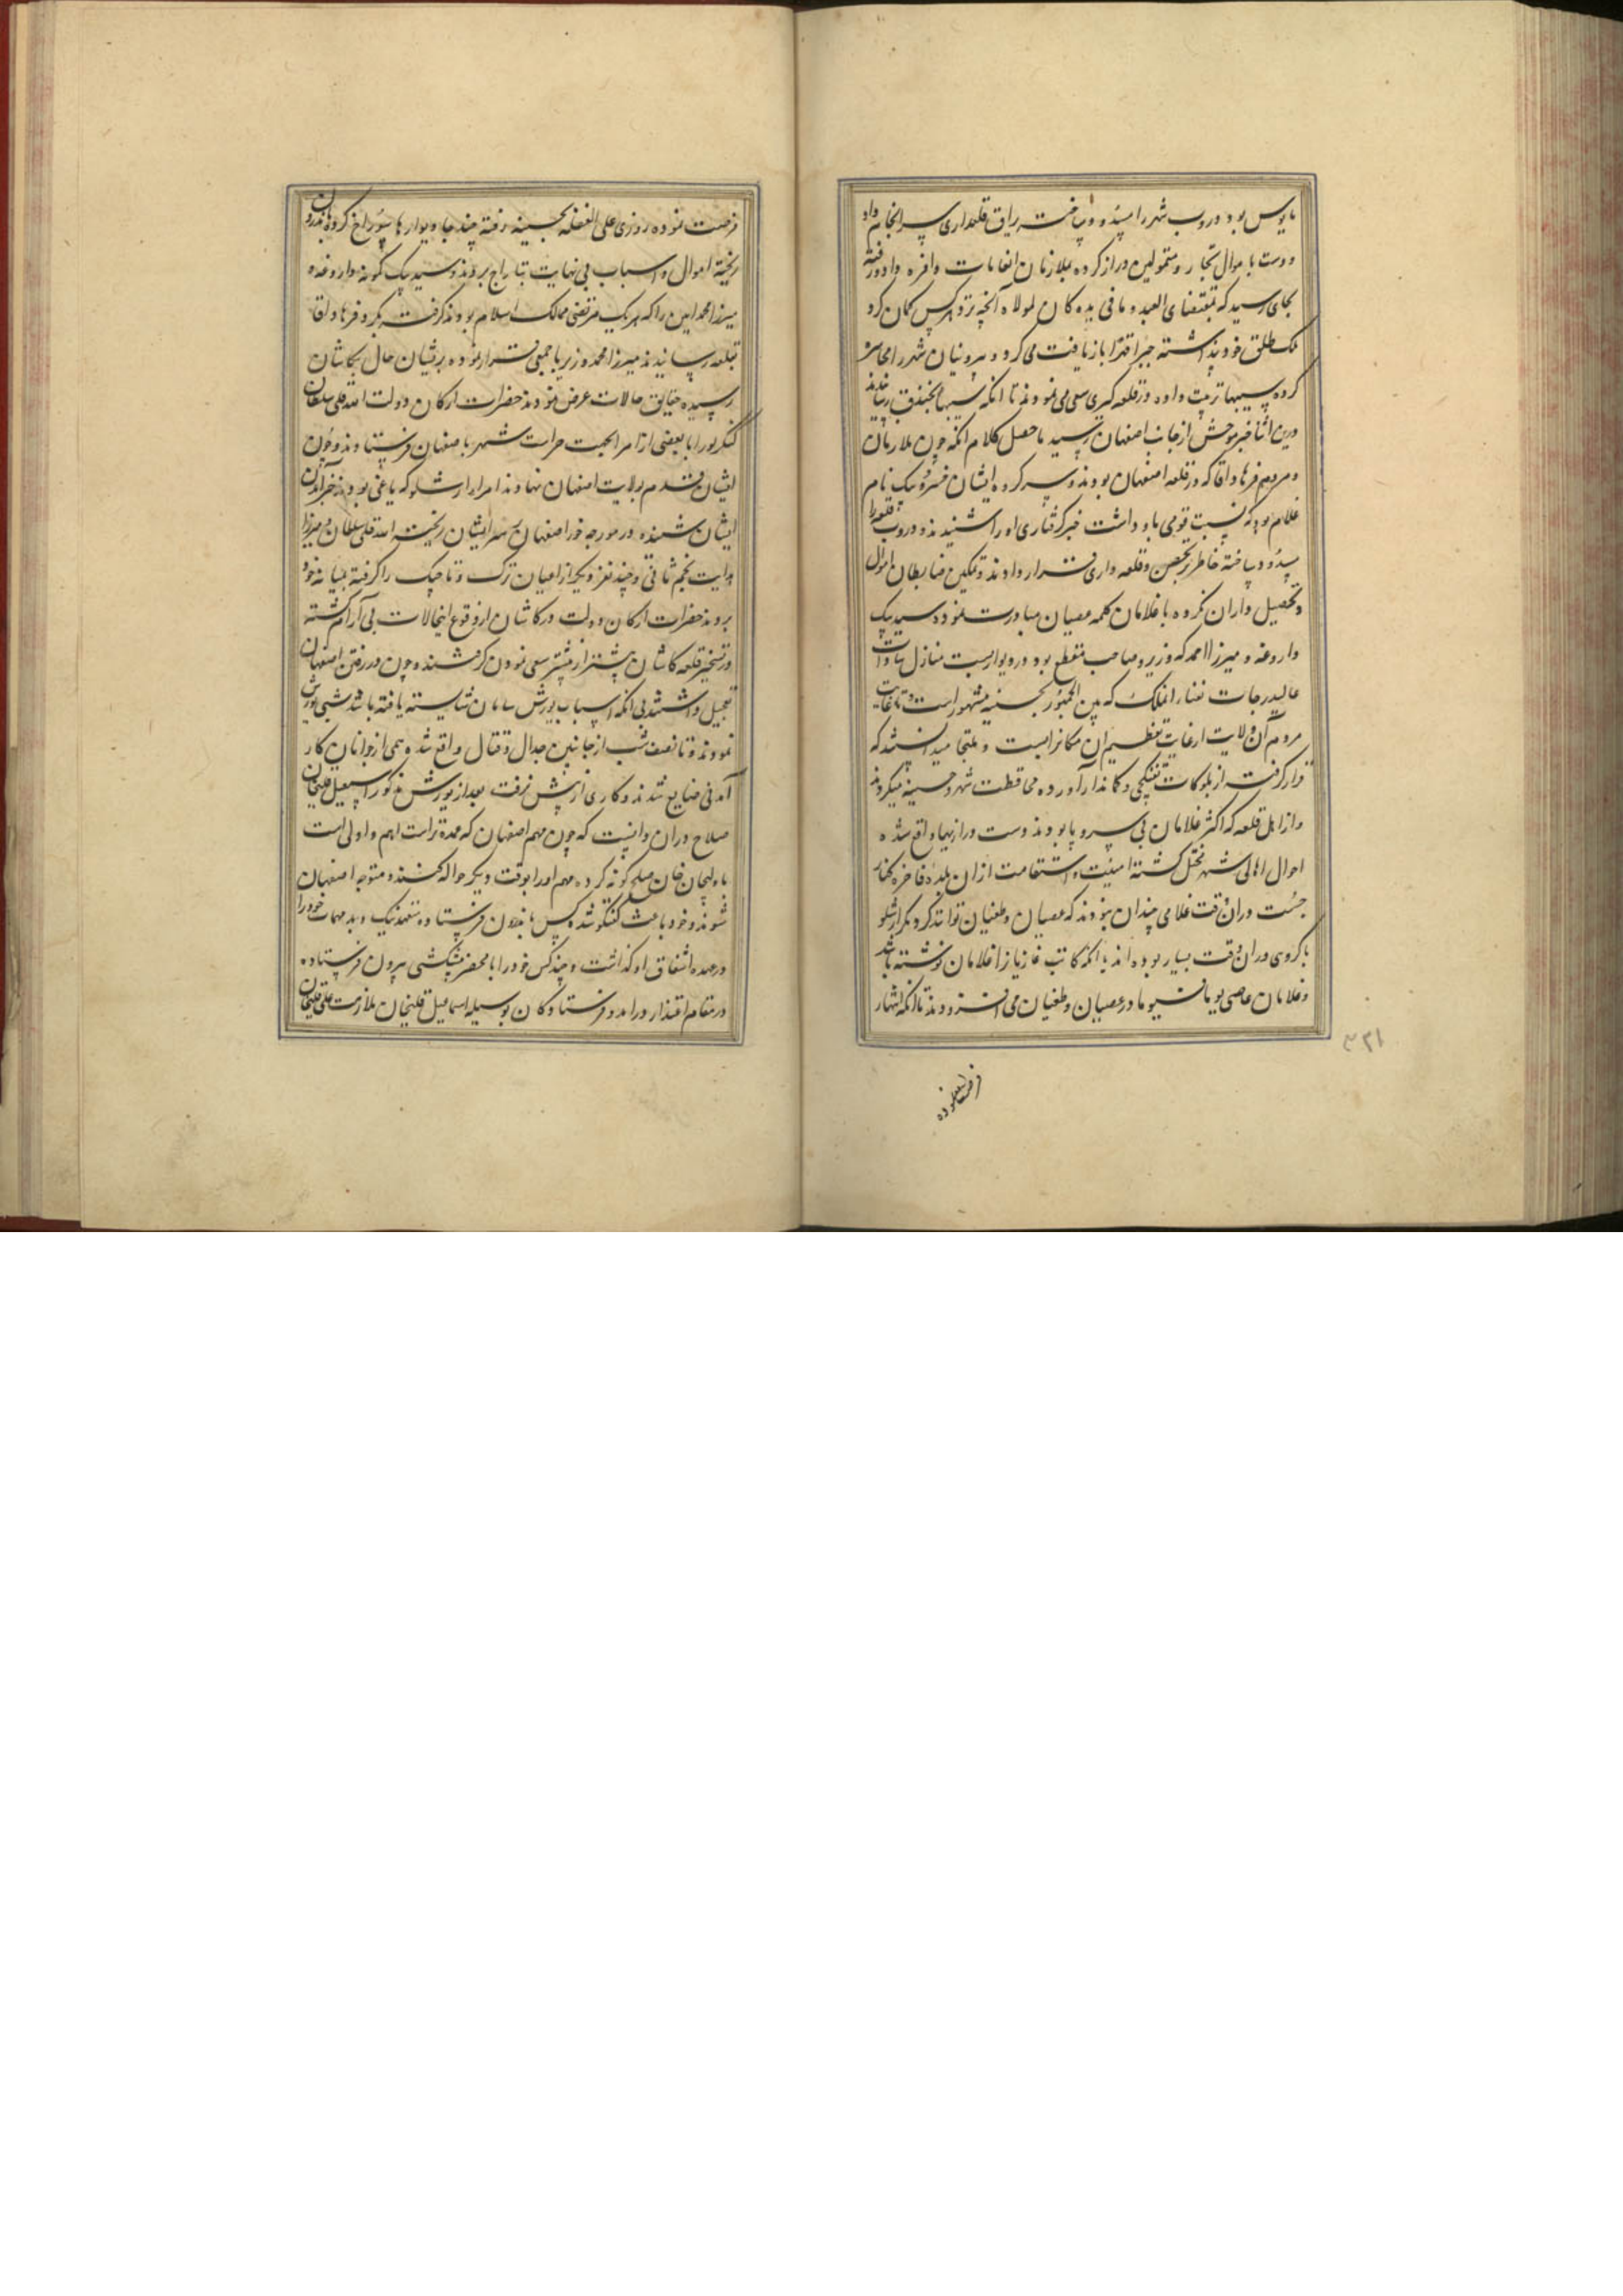 مایوس بود دروب شهر را مسدود ساخت یراق قلعداری سرانجام داد
و دست باموال تجار و متمولین دراز کرده بملازمان انعامات وافره داد و رفته
بجای رسید که بمقتضای العبد و ما فی یده کان لمولاه آنچه نزد هرکس کمان کرد
ملک طلق خود پنداشته جبرا قهرا بازیافت می کرد و بیرونیان شهر را محاصره
کرده سیبها ترتیب داده در قلعه کیری سعی می نمودند تا انکه سیبها بخندق رسانیدند
درین اثنا خبر موحش از جانب اصفهان رسید ماحصل کلام انکه چون ملازمان
و مردم فرهاد اقا که در قلعه اصفهان بودند و سرکرده ایشان خسرو بیک نام
غلام بود که نسبت قومی باو داشت خبر کرفتاری او را شنیدند دروب قلعه را
مسدود ساخته خاطر بتحصن و قلعه داری قرار دادند و تمکین ضابطان اموال
و تحصیلداران نکرده با غلامان کلمه عصیان مبادرت نمود و سید بیک
داروغه و میرزا احمد که وزیر و صاحب مقطع بود در دیوار بست منازل سادات
عالیدرجات نقبا را ملک که بین الجمهور بحسینیه مشهور است و غایت
مردم آن ولایت از غایت تعظیم ان مکانرا مبست و ملتجا میدانستند که
قرار کرفت از بلوکات تفنکچی و کماندار آورده محافظت شهر و حسینیه میکردند
و از اهل قلعه که اکثر غلامان بی سر و پا بودند دست درازیها واقع شده
احوال اهالی شهر مختل کشته امنیت و استقامت ازان بلده فاخره کناره
جست دران وقت غلامی چندان نبودند که عصیان و طغیان توانند کرد مکر ارشلو
با کروی دران وقت بسیار بوده اند یا انکه کاتب غازیانرا غلامان نوشته باشد
و غلامان عاصی یوما فیوما در عصیان و طغیان می افزودند تا انکه انتهاز
فرصت نموده
۳۲۱
فرصت نموده روزی علی الغفله بحسینیه رفته چند جا دیوارها سوراخ کرده باندرون
ریخته اموال و اسباب بی نهایت بتاراج بردند و سید بیک کمونه داروغه و
میرزا محمد امین را که هر یک مرتضی ممالک اسلام بودند کرفته بکر و فر هاد اقا
بقلعه رسانیدند میرزا محمد وزیر با جمعی فرار نموده پریشان حال بکاشان
رسیده حقایق حالات عرض نمودند حضرات ارکان دولت الله قلی سلطان
کنکرلو را با بعضی از امرا بجهت حراست شهر باصفهان فرستادند و چون
ایشان قدم بولایت اصفهان نهادند امراء ارشلو که یاغی بودند خبر آمدن
ایشان شنیده در مورچه خور اصفهان بر سر ایشان ریخته الله قلی سلطان و میرزا
هدایت نجم ثانی و چند نفر دیکر از اعیان ترک و تاجیک را کرفته بمیانه خود
بردند حضرات ارکان دولت در کاشان از وقوع اینحالات بی آرام کشته
در تسخیر قلعه کاشان بیشتر از پیشتر سعی نمودن کرفتند و چون در رفتن اصفهان
تعجیل داشتند بی انکه اسباب یورش سامان شایسته یافته باشد شبی یورش
نمودند و تا نصف شب از جانبین جدال و قتال واقع شده جمعی از جوانان کار
آمدنی ضایع شدند و کاری از پیش نرفت بعد از یورش مذکور اسمعیل قلیخان
صلاح دران دانست که چون مهم اصفهان که عمده تر است اهم و اولی است
با ولیجان خان صلح کونه کرده مهم او را بوقت دیکر حواله کنند و متوجه اصفهان
شوند و خود باعث کفتکو شده کس باندرون فرستاده متعهد نیک و بد مهمات خود را
در عهده اشفاق او کذاشت و چند کس خود را با محضر پیشکشی بیرون فرستاده
در مقام اعتذار درامد و فرستادکان بوسیله اسماعیل قلیخان ملازمت علی قلیخان